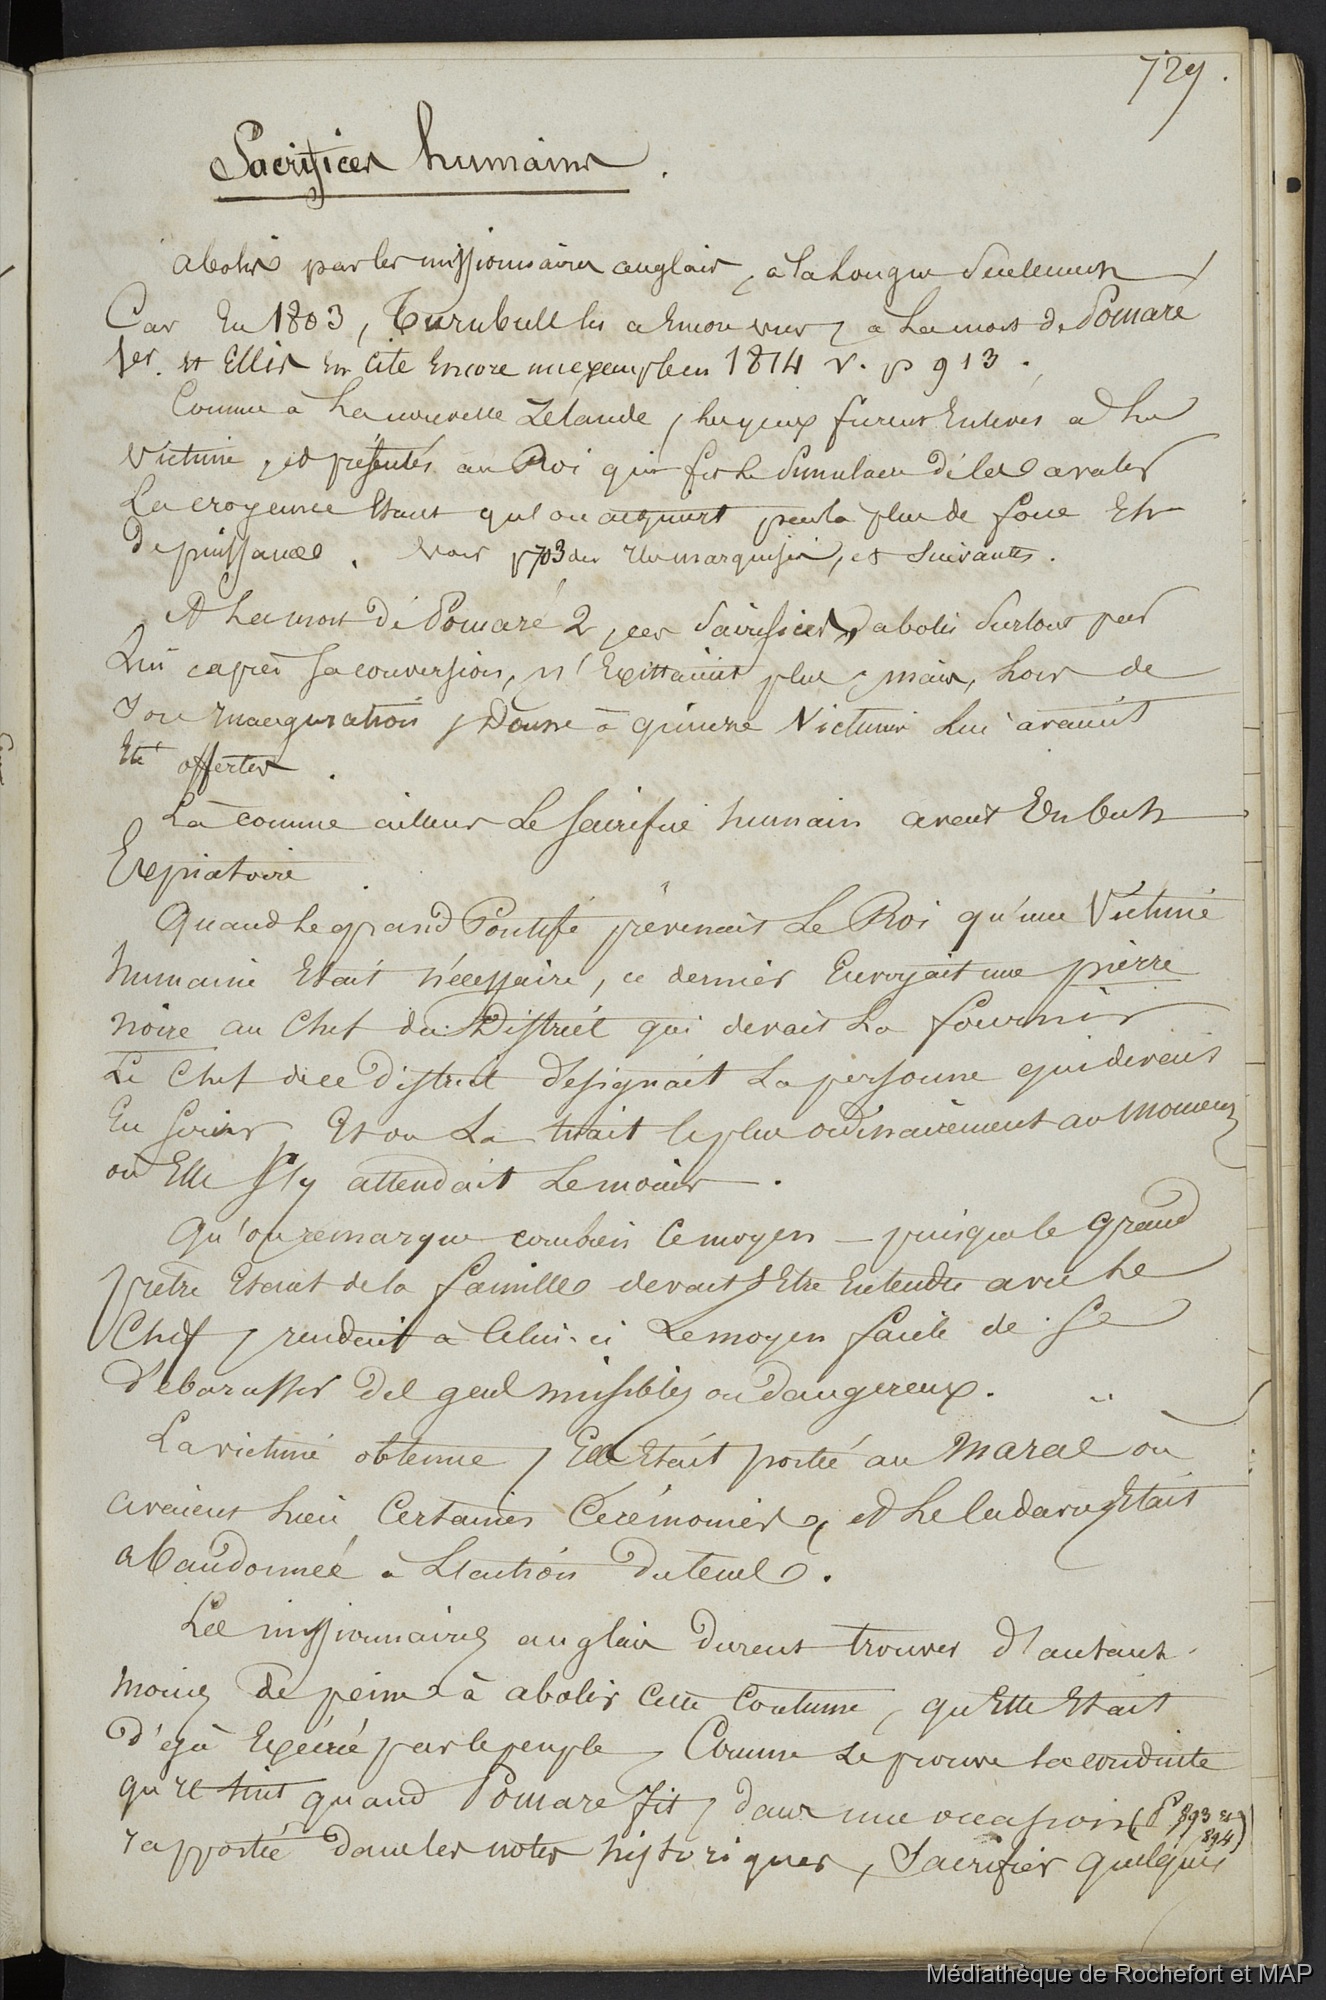 729.
Sacrifices humains.
abolis par les missionnaires anglais, à la longue seulement
Car en 1803, Turnbull les a encore vus, à la mort de Pomaré
1er. et Ellis en cite encore un exemple en 1814 v. p 913.
Comme à la nouvelle Zélande, les yeux furent enlevés à la
victime, et présentés au Roi qui fit le simulacre de les avaler
La croyance étant qu'on acquiert par là plus de force et
de puissance. voir p 703 des marquises, et suivantes.
A la mort de Pomaré 2, ces sacrifices, abolis surtout par
lui après sa conversion, n'existaient plus, mais, lors de
son inauguration, douze à quinze victimes lui avaient
été offertes.
Là comme ailleurs le sacrifice humain avait un but
Expiatoire.
Quand le grand Pontife prévenait le Roi qu'une victime
humaine était nécessaire, ce dernier envoyait une pierre
noire au chef du District qui devait la fournir
Le chef de ce District désignait la personne qui devait
en servir, et on la tuait le plus ordinairement au moment
où elle s'y attendait le moins.
Qu'on remarque combien ce moyen – puisque le grand
prêtre étant de la famille devait s'être entendu avec le
chef, rendait à celui-ci le moyen facile de se
débarasser des gens nuisibles ou dangereux.
La victime obtenue, elle était portée au maraé où
avaient lieu certaines cérémonies, et le cadavre était
abandonnée à l'action du tems.
Les missionnaires anglais durent trouver d'autant
moins de peine à abolir cette coutume, qu'elle était
déjà exécrée par le peuple, comme le prouve la conduite
qu'il tint quand Pomaré fit, dans une occasion (P 893 et
894)
rapportée dans les notes historiques, sacrifier quelques
Médiathèque de Rochefort et MAP